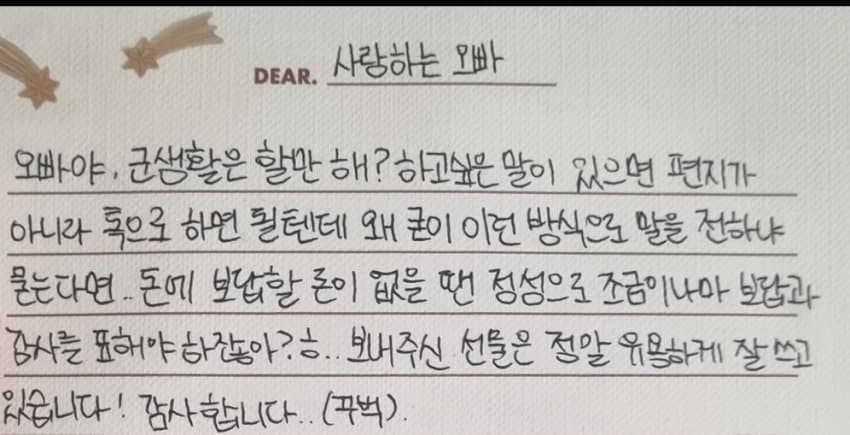 DEAR. 사랑하는 오빠
오빠야, 군생활은 할만 해? 하고싶은 말이 있으면 편지가
아니라 톡으로 하면 될텐데 왜 굳이 이런 방식으로 말을 전하냐
묻는다면.. 돈에 보답할 돈이 없을 땐 정성으로 조금이나마 보답과
감사를 표해야 하잖아? ㅎ.. 보내주신 선물은 정말 유용하게 잘 쓰고
있습니다! 감사합니다.. (꾸벅).